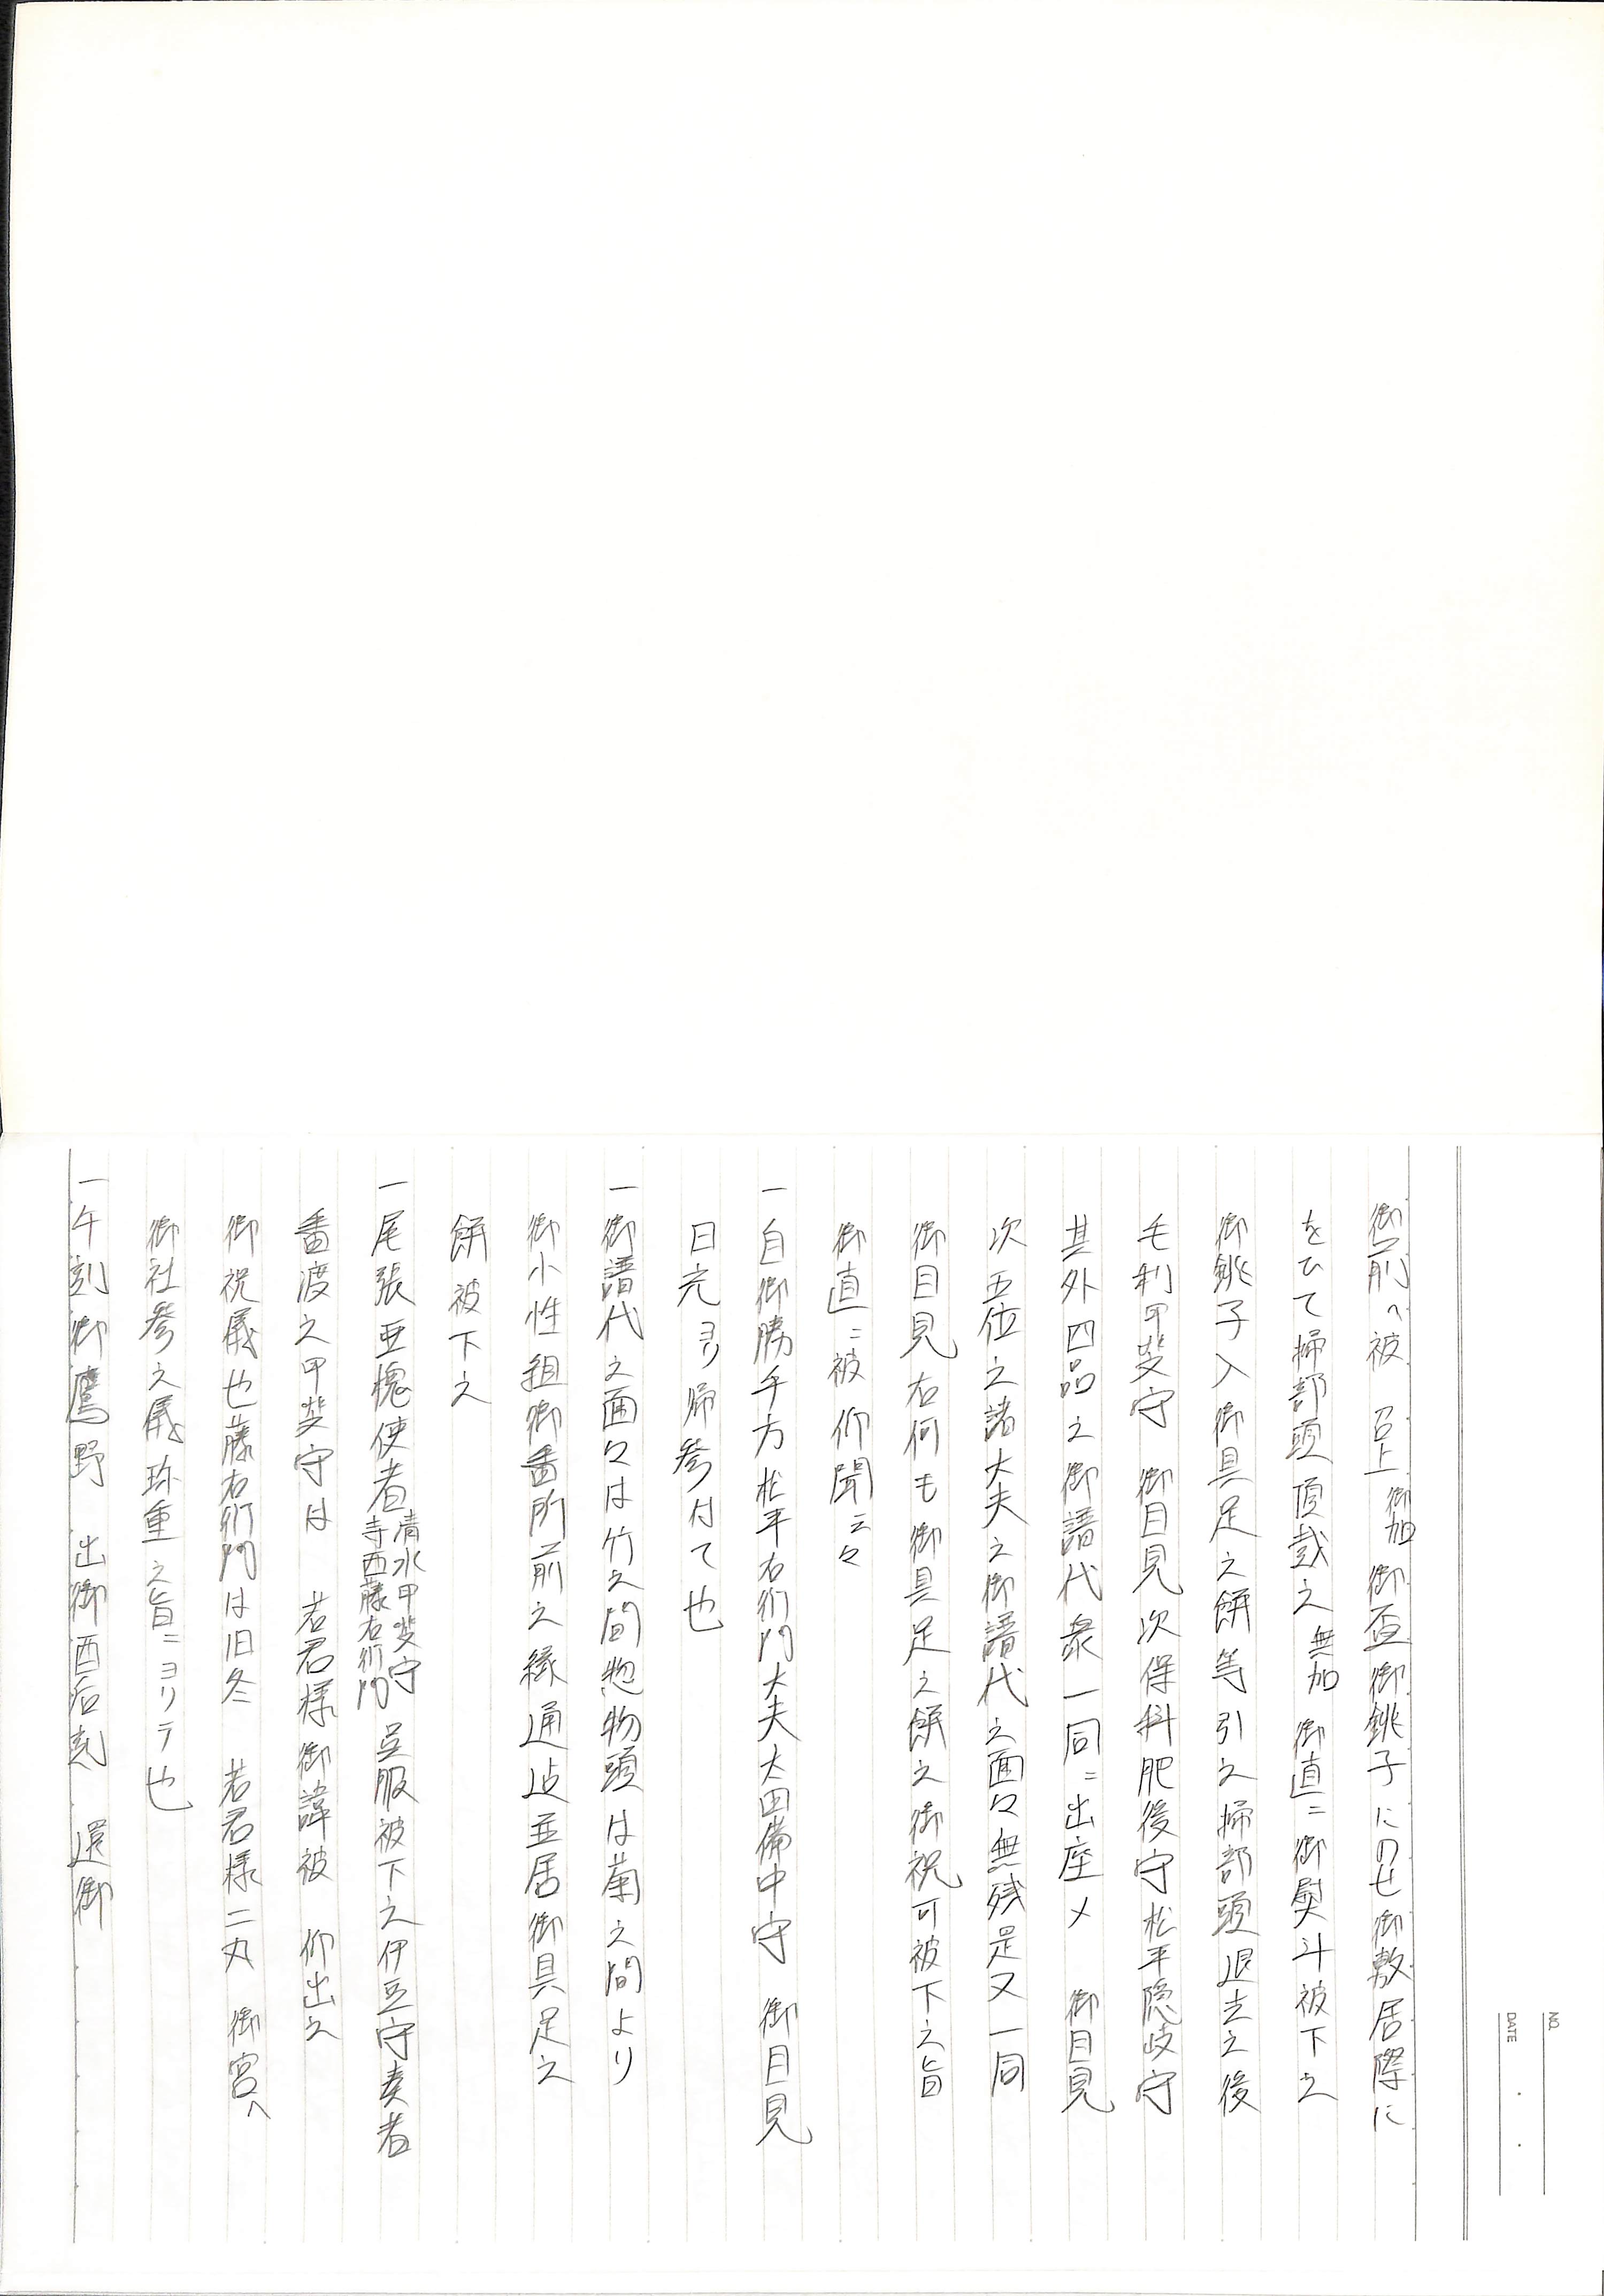 NO.
DATE
御前へ被 召上 御加 御盃御銚子にのせ御敷居際に
をひて掃部頭頂戴之 無加 御直ニ御熨斗被下之
御銚子入御具足之餅等引之掃部頭退去之後
毛利甲斐守 御目見次保科肥後守松平隠岐守
其外四品之御譜代衆一同ニ出座〆 御目見
次五位之諸大夫之御譜代之面々無残是又一同
御目見右何も御具足之餅之御祝可被下之旨
御直ニ被仰聞云々
一自御勝手方松平右衛門大夫太田備中守 御目見
日光ヨリ帰参付て也
一御譜代之面々は竹之間惣物頭は菊之間より
御小性組御番所前之縁通迠並居御具足之
餅被下之
一尾張亜槐使者 清水甲斐守 寺西藤右衛門 呉服被下之伊豆守奏者
番渡之甲斐守は 若君様御諱被 仰出之
御祝儀也藤右衛門は旧冬 若君様二丸 御宮へ
御社参之儀珎重之旨ニヨリテ也
一午刻御鷹野 出御酉后刻 還御